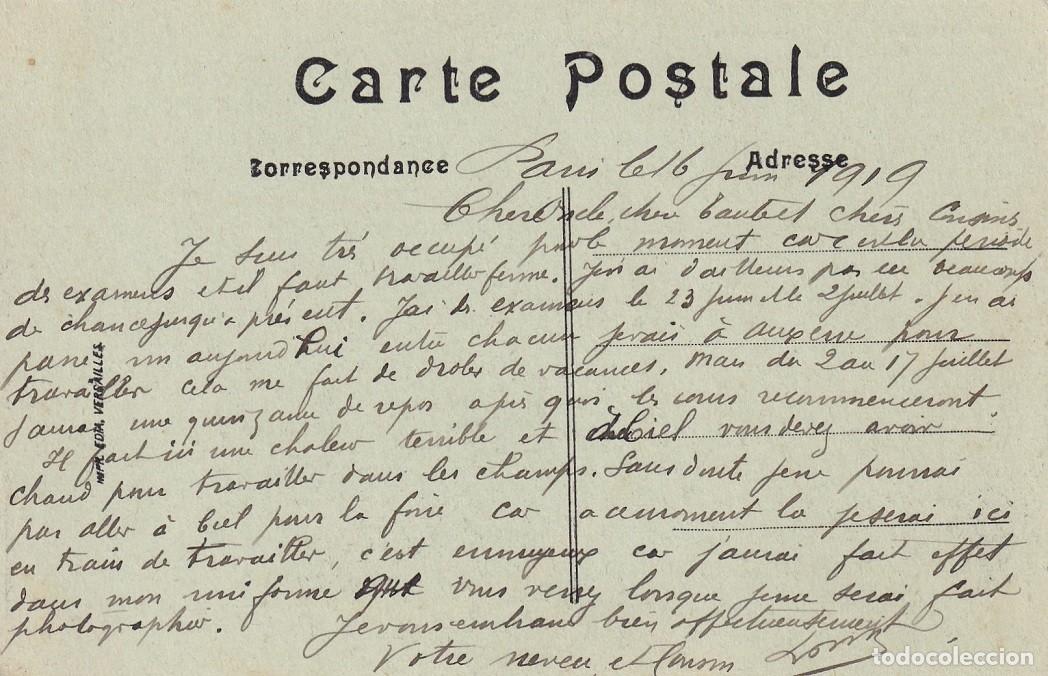 Carte Postale
Correspondance
Adresse
Paris le 16 Juin 1919
Cher Oncle, chère Tante et chers Cousins
Je suis très occupé pour le moment car c'est la période
des examens et il faut travailler ferme. Je n'ai d'ailleurs pas eu beaucoup
de chance jusqu'à présent. J'ai des examens le 23 Juin et le 2 Juillet. J'en ai
passé un aujourd'hui entre chacun j'irais à Auxerre pour
travailler cela me fait de drôles de vacances. Mais du 2 au 17 Juillet
j'aurai une quinzaine de repos après quoi les cours recommenceront.
Il fait ici une chaleur terrible et à Ciel vous devez avoir
chaud pour travailler dans les champs. Sans doute je ne pourrai
pas aller à Ciel pour la foire car a ce moment la je serai ici
en train de travailler, c'est ennuyeux car j'aurai fait effet
dans mon uniforme que vous verrez lorsque je me serai fait
photographier. Je vous embrasse bien affectueusement
Votre neveu et Cousin
IMPR. EDIA, VERSAILLES
todocoleccion